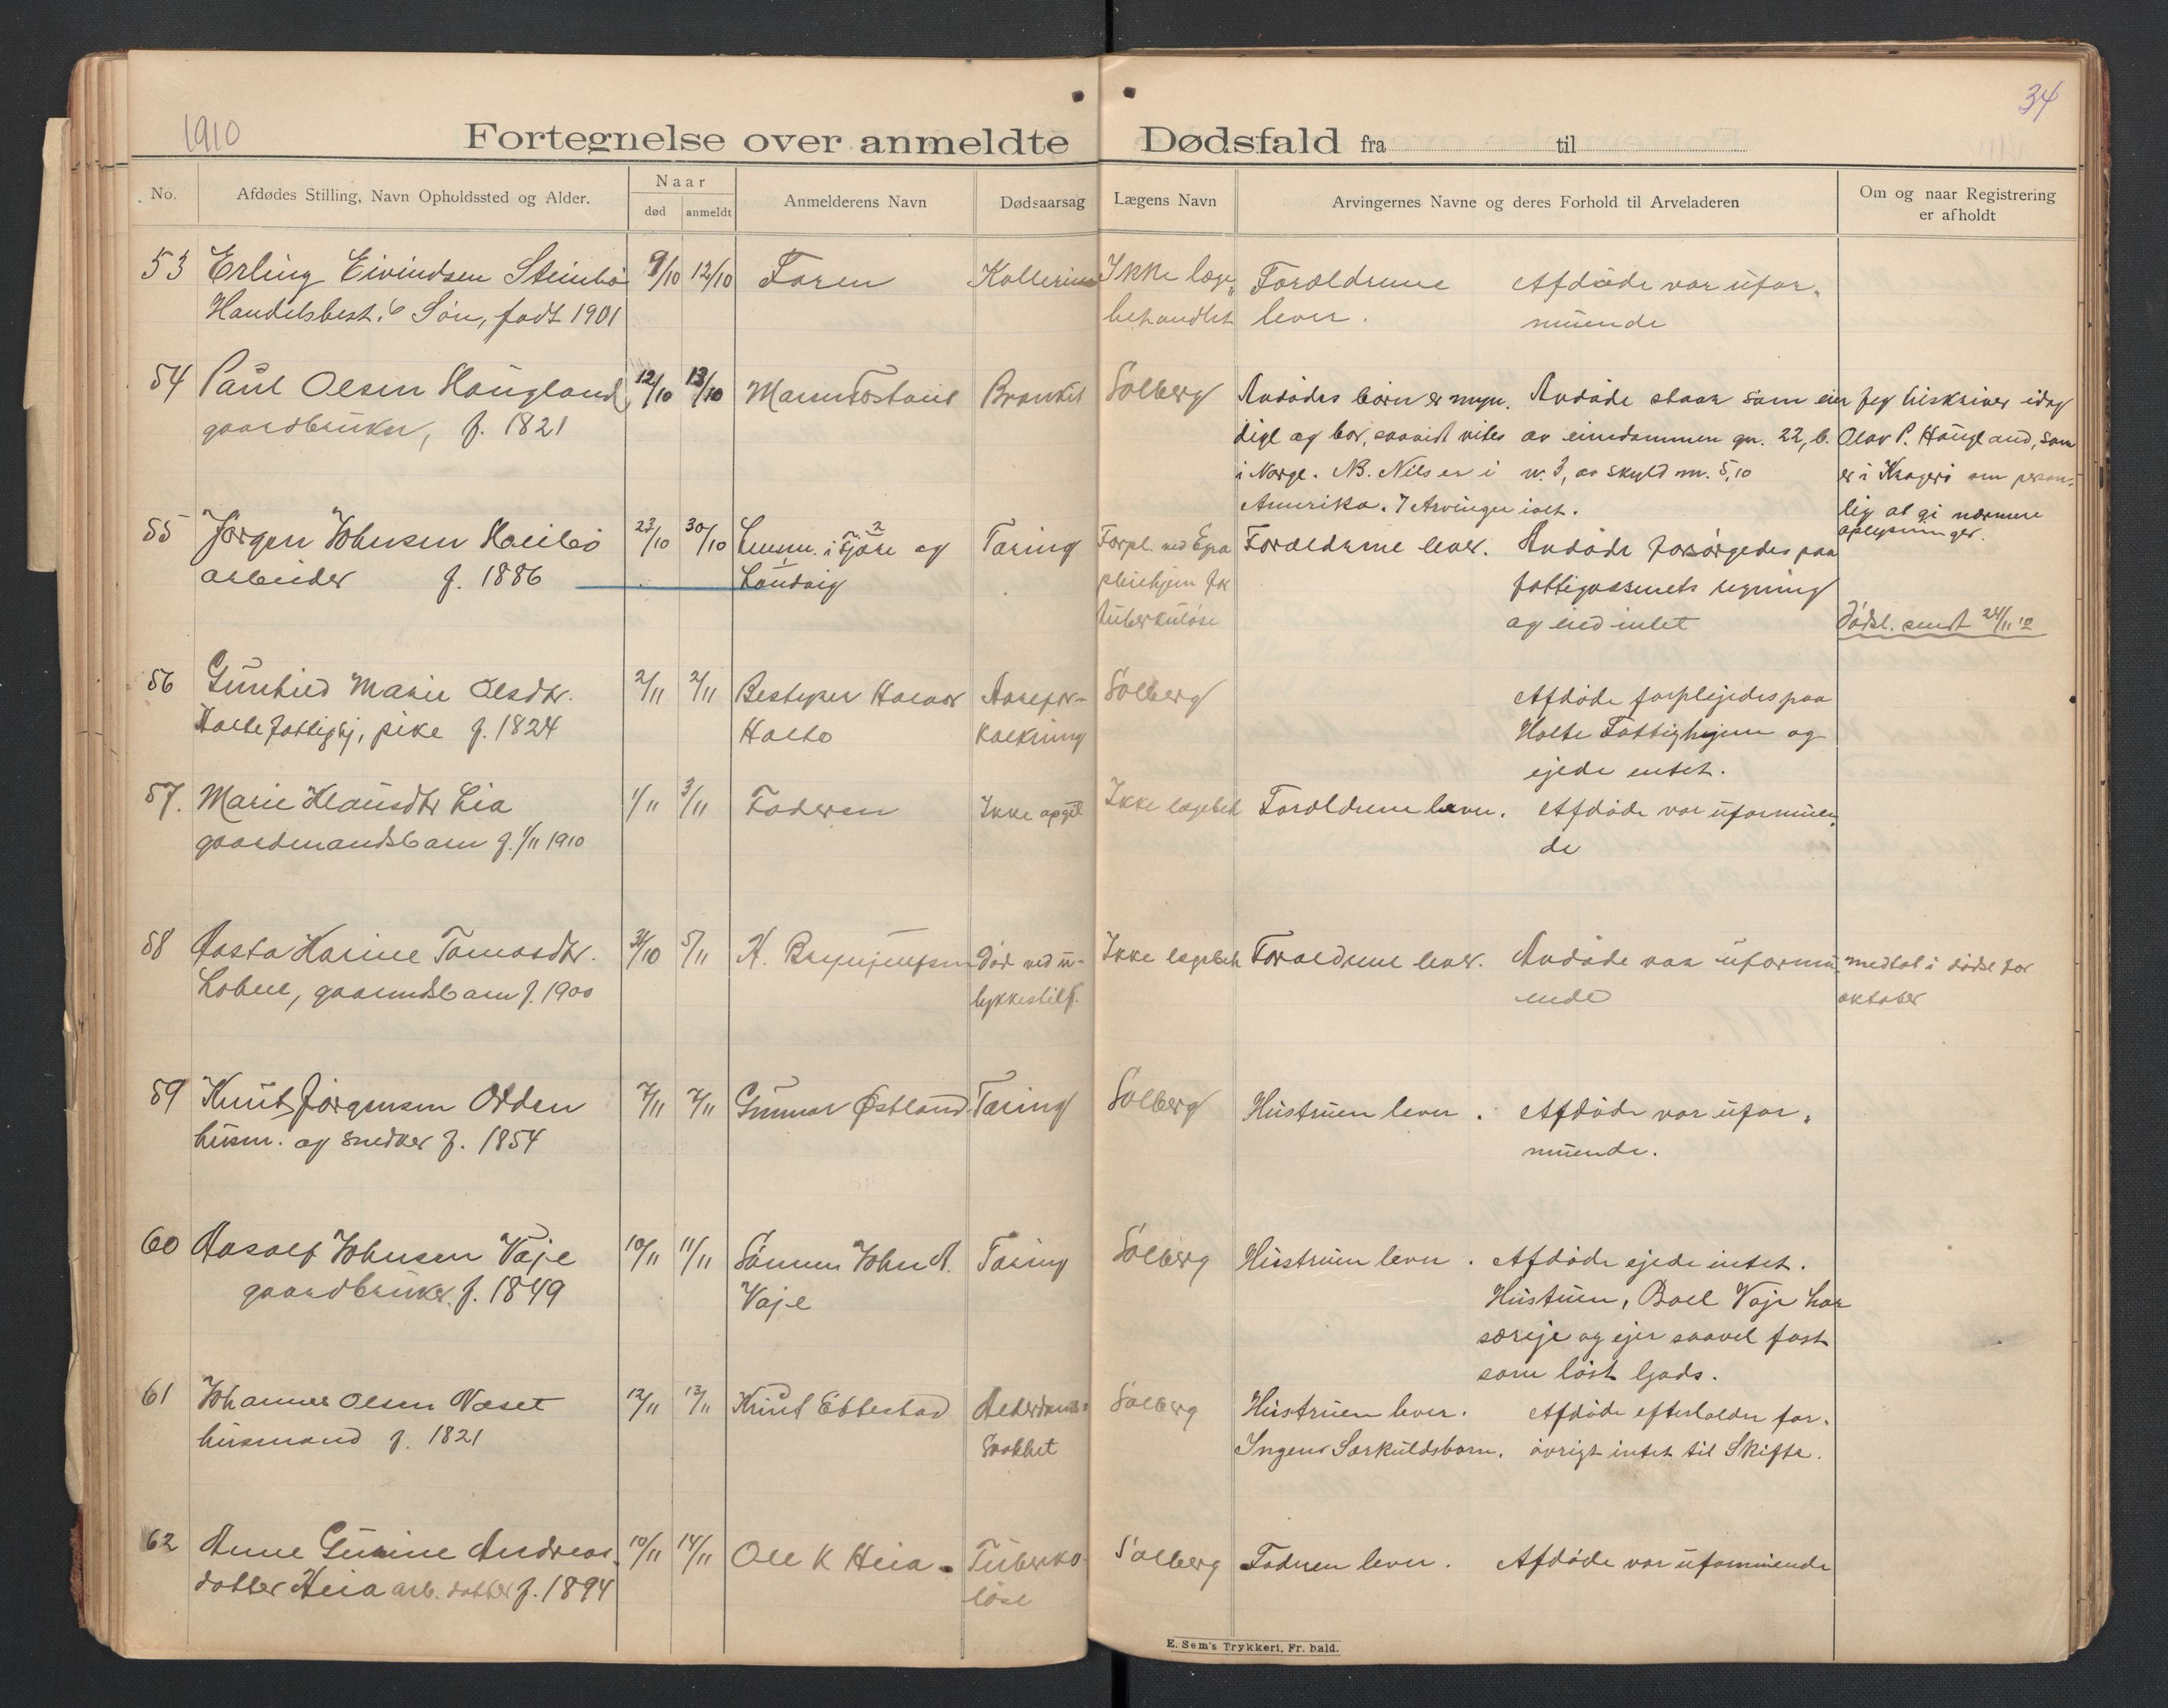 1910
34
Fortegnelse over anmeldte Dødsfald fra til
No.
Afdødes Stilling, Navn Opholdssted og Alder.
Naar
død
anmeldt
Anmelderens Navn
Dødsaarsag
Lægens Navn
Arvingernes Navne og deres Forhold til Arveladeren
Om og naar Registrering
er afholdt
53 Erling Eivindsen 9/10 12/10 Faren Ikke læge, Foræld­rene Afdøde var ufor„
Handelsbest.s Søn, født 1901 behandlet lever. muende
54 Paul Olsen Haugland 12/10 13/10 Brankit Solberg Avdødes børn er myn. Avdøde staar som eier Jeg hiskriver idag
gaardbruker, f. 1821 digt og bor, saavidt vites av eiendommen gn. 22, b. Olav P. Haugland, som
i Norge. NB. Nils er i nr. 3, av skyld m. 5,10 er i Kragerø om person-
Amerika. 7 Arvinger ialt. lig at gi nærmere
oplysninger.
55 Jørgen Johnsen 23/10 30/10 Lensm. i Gjære og Tæring Forpl. ved pleiehjem for Forældrene lever. Avdøde forsørgedes paa
arbeider f. 1886 Landvig fattigvæsenets regning
tuberkuløse og eied intet Dødsl. sendt 24/11 10
56 Gunhild Marie Olsdtr. 2/11 2/11 Bestyrer Halvor Aarefor- Solberg Afdøde forplejedes paa
Holte fattighj, pike f. 1824 Holte kalkning Holte Fattighjem og
ejede intet.
57. Marie Klausdtr Lia 1/11 3/11 Faderen Ikke opgit Ikke lægebeh Forældrene lever. Afdøde var uformuen„
gaardmandsbarn f. 1/11 1910 de
58 Aasta Karine Tomasdtr. 31/10 5/11 H. Brynjulfsen Død ved u- Ikke lægebeh Forældrene lever. Avdøde var uformu- medtat i dødsl for
gaarmdsbarn f. 1900 lykkestilf. ende oktober
59 Knut Jørgensen Odden 7/11 7/11 Gunnar Østland Tæring Solberg Hustruen lever. Afdøde var ufor„
husm. og snedker f. 1854 muende.
60 Aasolf Johnsen Vaje 10/11 11/11 Sønnen John A. Tæring Solberg Hustruen lever. Afdøde ejede intet.
gaardbruker. f. 1849 Vaje Hustruen, Boel Vaje har
særeje og ejer saavel fast
som løst Gods.
61 Johannes Olsen Næset 12/11 13/11 Knut Ettestad Alderdoms- Solberg Hustruen lever. Afdøde efterlader for„
husmand f. 1821 svakhet Ingen Særkuldsbarn. øvrigt intet til Skifte.
62 Anne Gurine Andreas- 10/11 14/11 Ole K Heia Tuberku- Solberg Faderen lever. Afdøde var uformuende
datter Heia arb. datter f. 1894 løse
E. Sem's Trykkeri, Fr. hald.